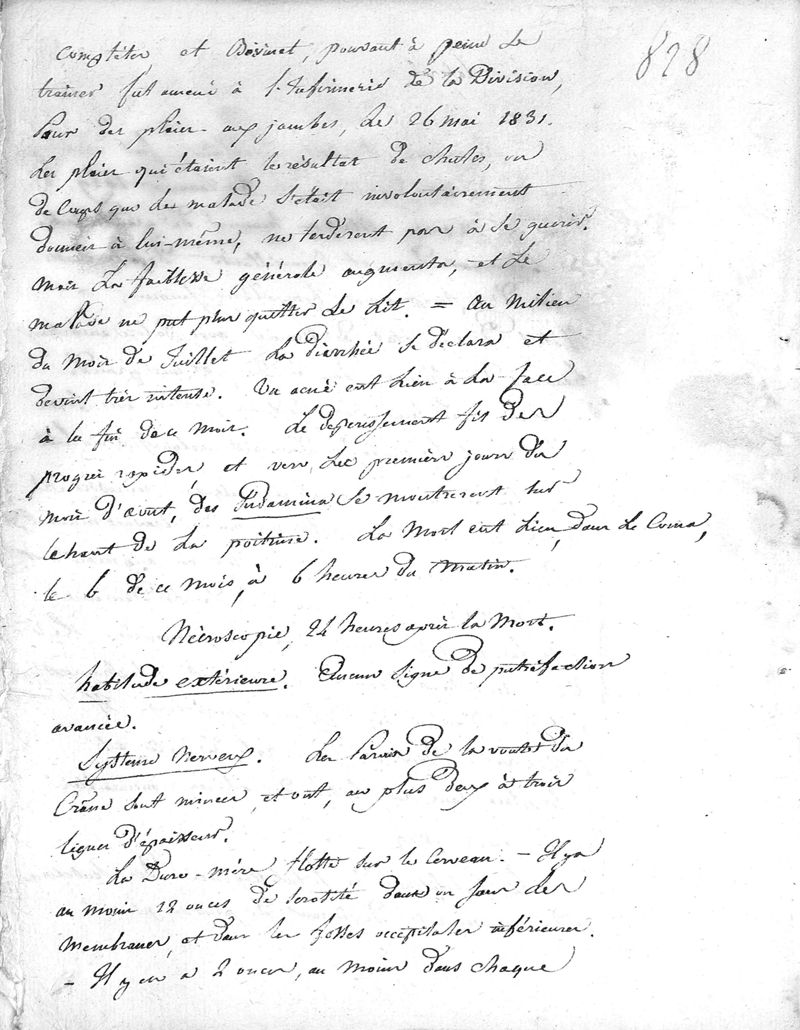 828
complèter, et Boisinet, pouvant à peine se
trainer fut amené à l'Infirmerie de la Division,
pour des plaies aux jambes, le 26 mai 1831.
Les plaies qui étaient le résultat de chutes, ou
de coups que le malade s'était involontairement
donnés à lui-même, ne tarderent pas à se guerir.
mais La faiblesse générale augmenta, et Le
malade ne put plus quitter Le Lit. = au milieu
du mois de Juillet La diarrhée se déclara et
devint très intense. Un acné eut Lieu à La face
à la fin de ce mois. Le deperissement fit des
progrès rapides, et vers Les premiers jours du
mois d'aout, des Sudamina se montrerent sur
le haut de La poitrine. La Mort eut Lieu, dans Le Coma,
le 6 de ce mois, à 6 heures du matin.
Nécroscopie, 24 heures après la Mort.
habitude extérieure. Aucun signe de putréfaction
avancée.
Système Nerveux. Les Parois de la voute du
Crâne sont minces, et ont, au plus deux à trois
lignes d'épaisseur.
La Dure-mère flotte sur le cerveau. - Il y a
au moins 12 onces de serosité dans les
membranes, et dans les fosses occipitales inférieures.
- Il y en a 2 onces, au moins dans chaque